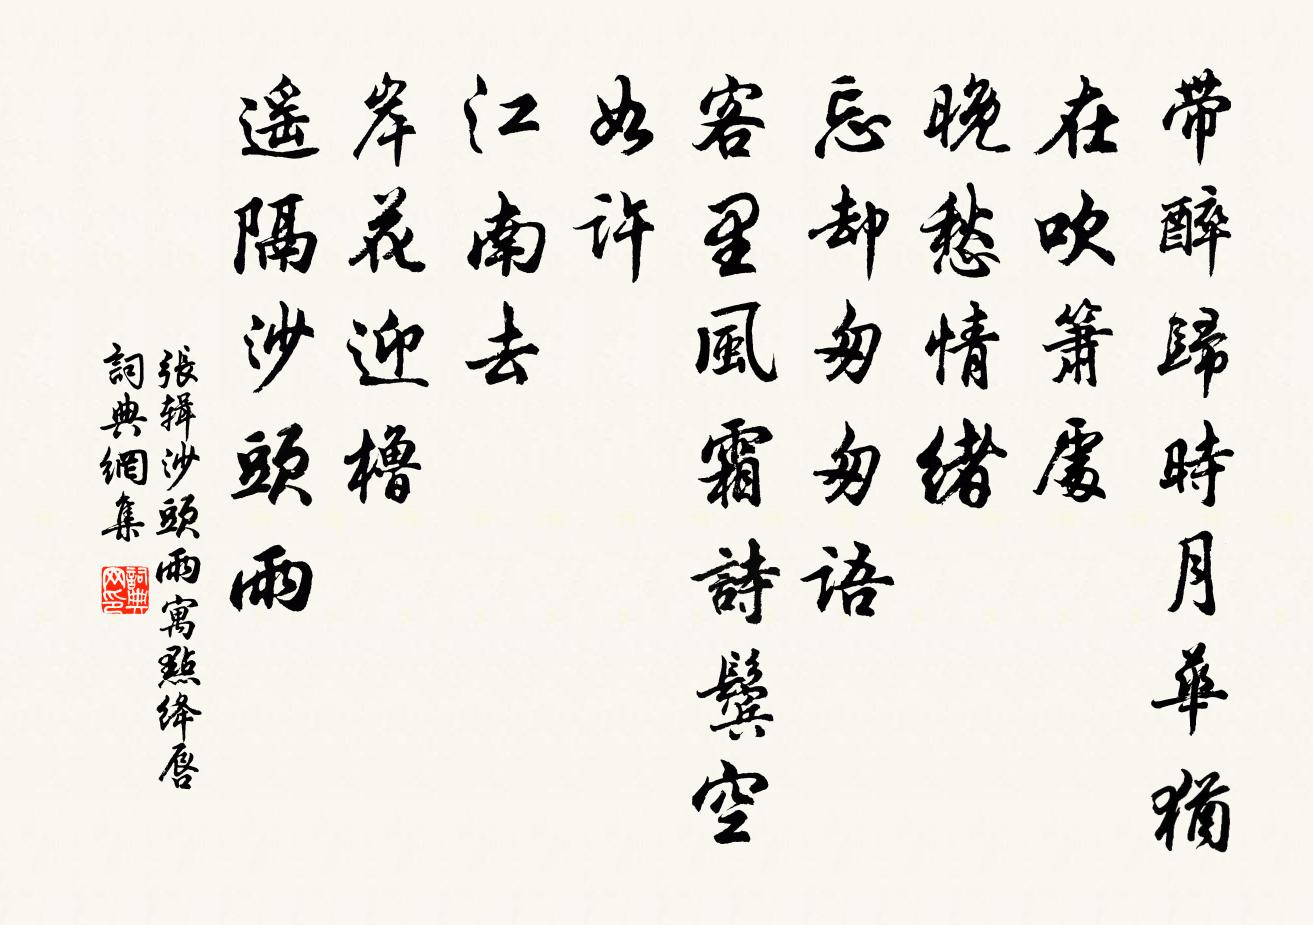 带醉歸時月華猶
在吹簫處
晚愁情緒
忘却匆匆語
客里風霜詩鬓空
如許
江南去
岸花迎櫓
遥隔沙頭雨
張辑沙頭雨寓點绛唇
詞典網集
詞典
网印